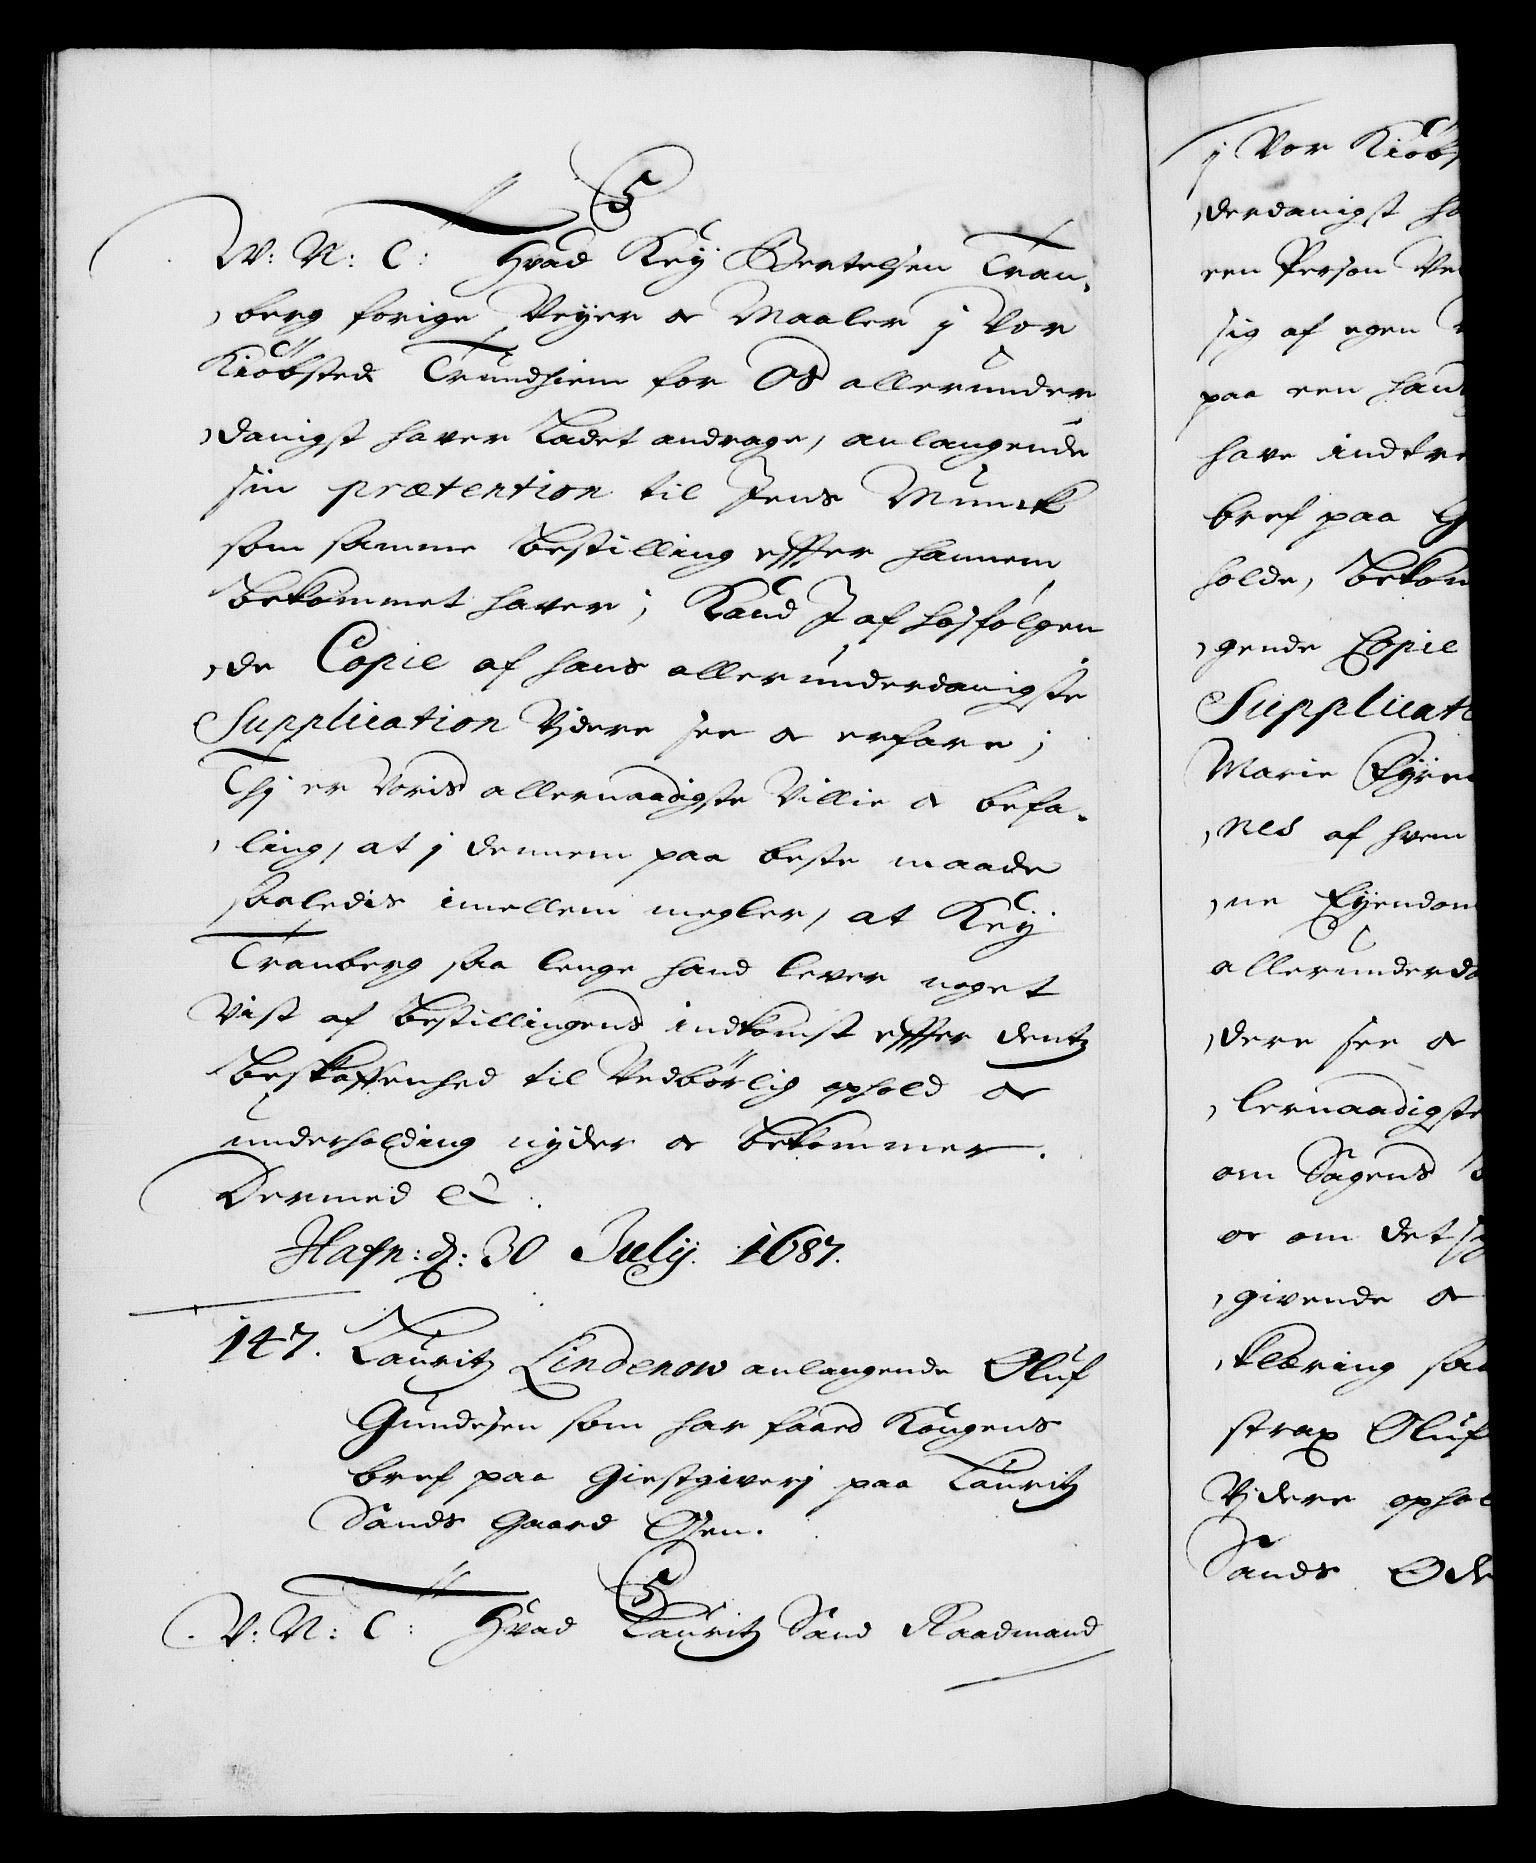 C5
W: N: C: Hvad Key Bertelsen Tran-
berg forige Veyer oc Maaler j Vor
Kiöbsted Trundhiem for Os allerunder
danigst haver Ladet andrage, anlangende
sin prætention til Jens Munck
som samme Bestilling effter hannem
Bekommet haver; Kand J af hosfölgen
de Copie af hans allerunderdanigste
Supplication Videre see oc erfare;
Thj er Voris allernaadigste Villie oc befa-
ling, at j dennem paa beste maade
saaledis imellem megler, at Key
Tranberg saa lenge hand lever noget
Vist af Bestillingens indkomst effter dentz
Beskaffenhed til Vedbörlig ophold oc
underholding nyder oc Bekommer.
Dermed &.
Hafn: d: 30 Julij. 1687.
147. Lauritz Lindenow anlangende Oluf
Gundesen som har faaed Kongens
bref paa Giestgiverj paa Lauritz
Sands Gaard Osen.
C5
V: N: C: Hvad Lauritz Sand Raadmand
j Vor Kiöbs
derdanigst ha
een Person Ve
sig af egen
paa een hand
have indtre
bref paa G
holde, Bekom
gende Copie
Supplicati
Marie Eyen
nes af hvem
ne Eyendom
allerunderda
dere see oc
lernaadigste
om Sagens
oc om det si
givende oc
klæring sa
strax Oluf
Videre ophol
Sands Ode